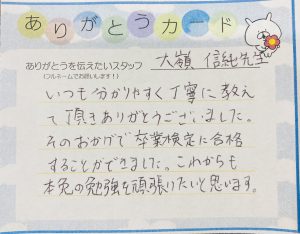 ありがとうカード
ありがとうを伝えたいスタッフ
(フルネームでお願いします!)
大嶺 信純先生
いつも分かりやすく丁寧に教え
て頂きありがとうございました。
そのおかげで卒業検定に合格
することができました。これからも
本免の勉強を頑張りたいと思います。